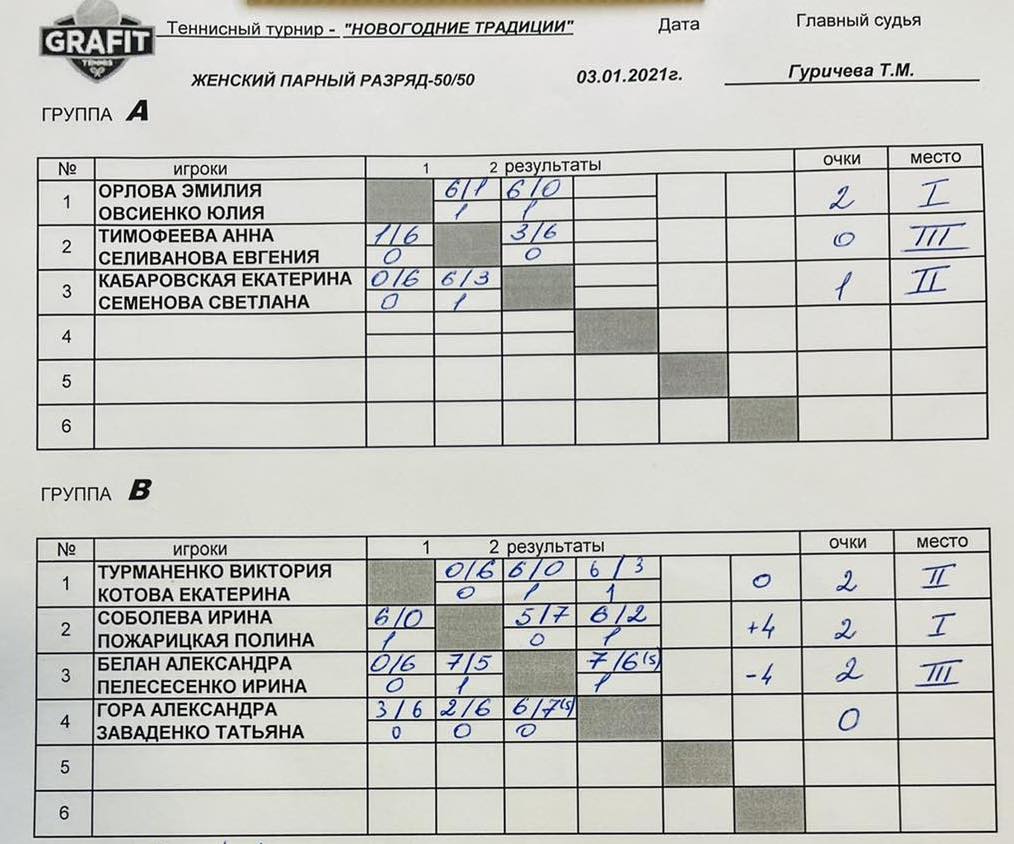 GRAFIT
TENNIS
Теннисный турнир - "НОВОГОДНИЕ ТРАДИЦИИ" Дата Главный судья
ЖЕНСКИЙ ПАРНЫЙ РАЗРЯД-50/50 03.01.2021г. Гуричева Т.М.
ГРУППА А
№ игроки 1 2 результаты очки место
1 ОРЛОВА ЭМИЛИЯ 6/1 6/0 2 I
ОВСИЕНКО ЮЛИЯ 1 1
2 ТИМОФЕЕВА АННА 1/6 3/6 0 III
СЕЛИВАНОВА ЕВГЕНИЯ 0 0
3 КАБАРОВСКАЯ ЕКАТЕРИНА 0/6 6/3 1 II
СЕМЕНОВА СВЕТЛАНА 0 1
4
5
6
ГРУППА В
№ игроки 1 2 результаты очки место
1 ТУРМАНЕНКО ВИКТОРИЯ 0/6 6/0 6/3 0 2 II
КОТОВА ЕКАТЕРИНА 0 1 1
2 СОБОЛЕВА ИРИНА 6/0 5/7 6/2 +4 2 I
ПОЖАРИЦКАЯ ПОЛИНА 1 0 1
3 БЕЛАН АЛЕКСАНДРА 0/6 7/5 7/6(5) -4 2 III
ПЕЛЕСЕСЕНКО ИРИНА 0 1 1
4 ГОРА АЛЕКСАНДРА 3/6 2/6 6/7(5) 0
ЗАВАДЕНКО ТАТЬЯНА 0 0 0
5
6